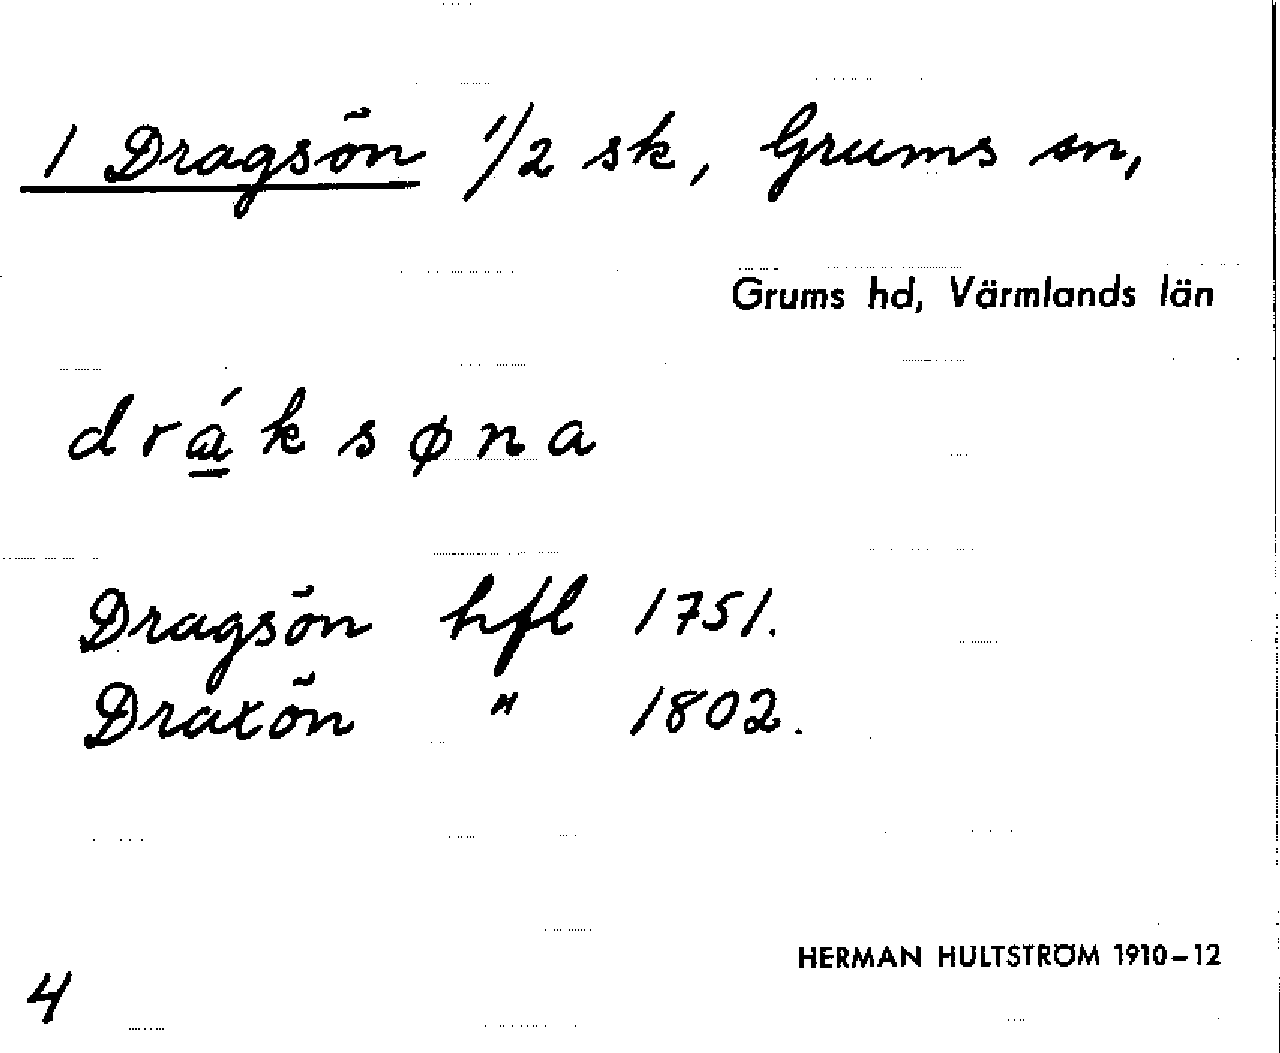 1 Dragsön 1/2 sk, Grums sn,
Grums hd, Värmlands län
drá̱ksøna
Dragsön hfl 1751.
Draxön " 1802.
HERMAN HULTSTRÖM 1910–12
4